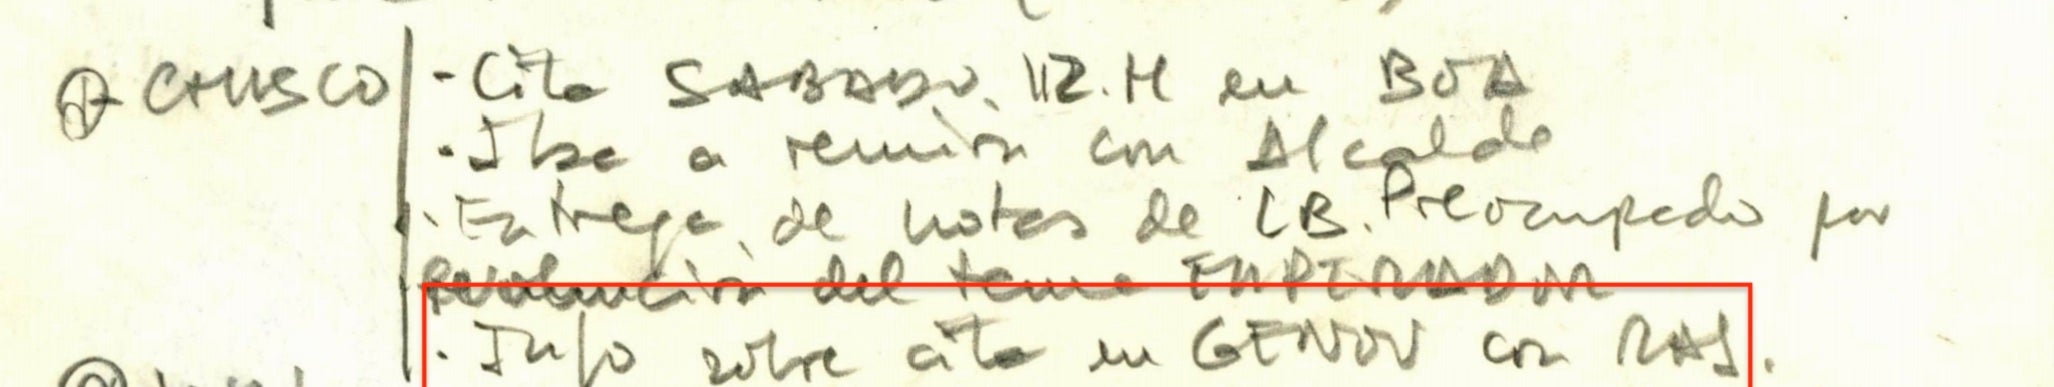 CHUSCO
- Cita SABADO. 12.H en BOA
- Iba a reunión con Alcalde
· Entrega de notas de LB. Preocupado por
evolución del tema EMPERADOR
· Info sobre cita en GENOV con RAJ.